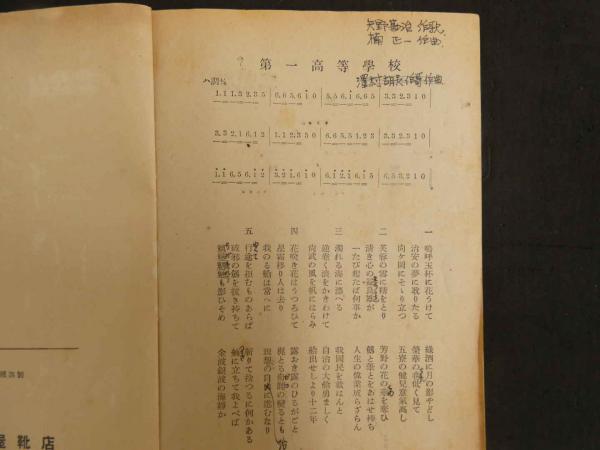 矢野勘治 作歌
楠 正一 作曲
第一高等學校
ハ調
1.1 1.3 2.3 5 | 6.6 5.6 1 0 | 5.5 6.1 6.6 5 | 3.3 2.3 1 0
3.3 2.1 6.1 2 | 1.1 2.3 5 0 | 6.6 5.5 1 2 3 | 3.3 2.3 1 0
1.1 6.5 6.1 2 | 3.2 1.6 1 0 | 6.1 2.1 6.1 5 | 6.5 3.2 1 0
一 嗚呼玉杯に花うけて
綠酒に月の影やどし
治安の夢に耽りたる
榮華の巷低く見て
向ケ岡にそゝり立つ
五寮の健兒意氣高し
二 芙蓉の雪に精をとり
芳野の花の華を奪ひ
清き心の益良雄が
劔と筆とをあはせ持ち
一たび起たば何事か
人生の偉業成らざらん
三 濁れる海に漂へる
我國民を救はんと
逆卷く浪をかきわけて
自治の大船勇ましく
尚武の風を帆にはらみ
船出せしより十二年
四 花咲き花はうつろひて
露おき露のひるがごと
星霜移り人は去り
梶とる舟師の變るとも
我のる船は常へに
理想の自治に進むなり
五 行途を拒むものあらば
斬りて捨つるに何かある
破邪の劔を拔き持ちて
舳に立ちて我よべば
魑魅魍魎も影ひそめ
金波銀波の海靜か
屋靴店